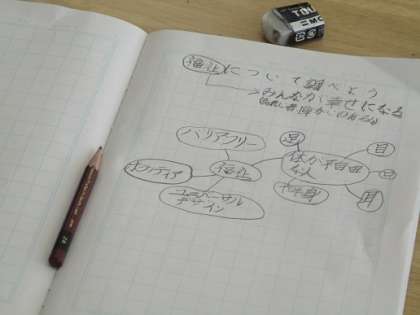 TOM
MO
福祉について調べよう
みんなが幸せになる
バリアフリー
足
体が不自由な人
目
口
ボランティア
福祉
半身
耳
ユニバーサル
デザイン